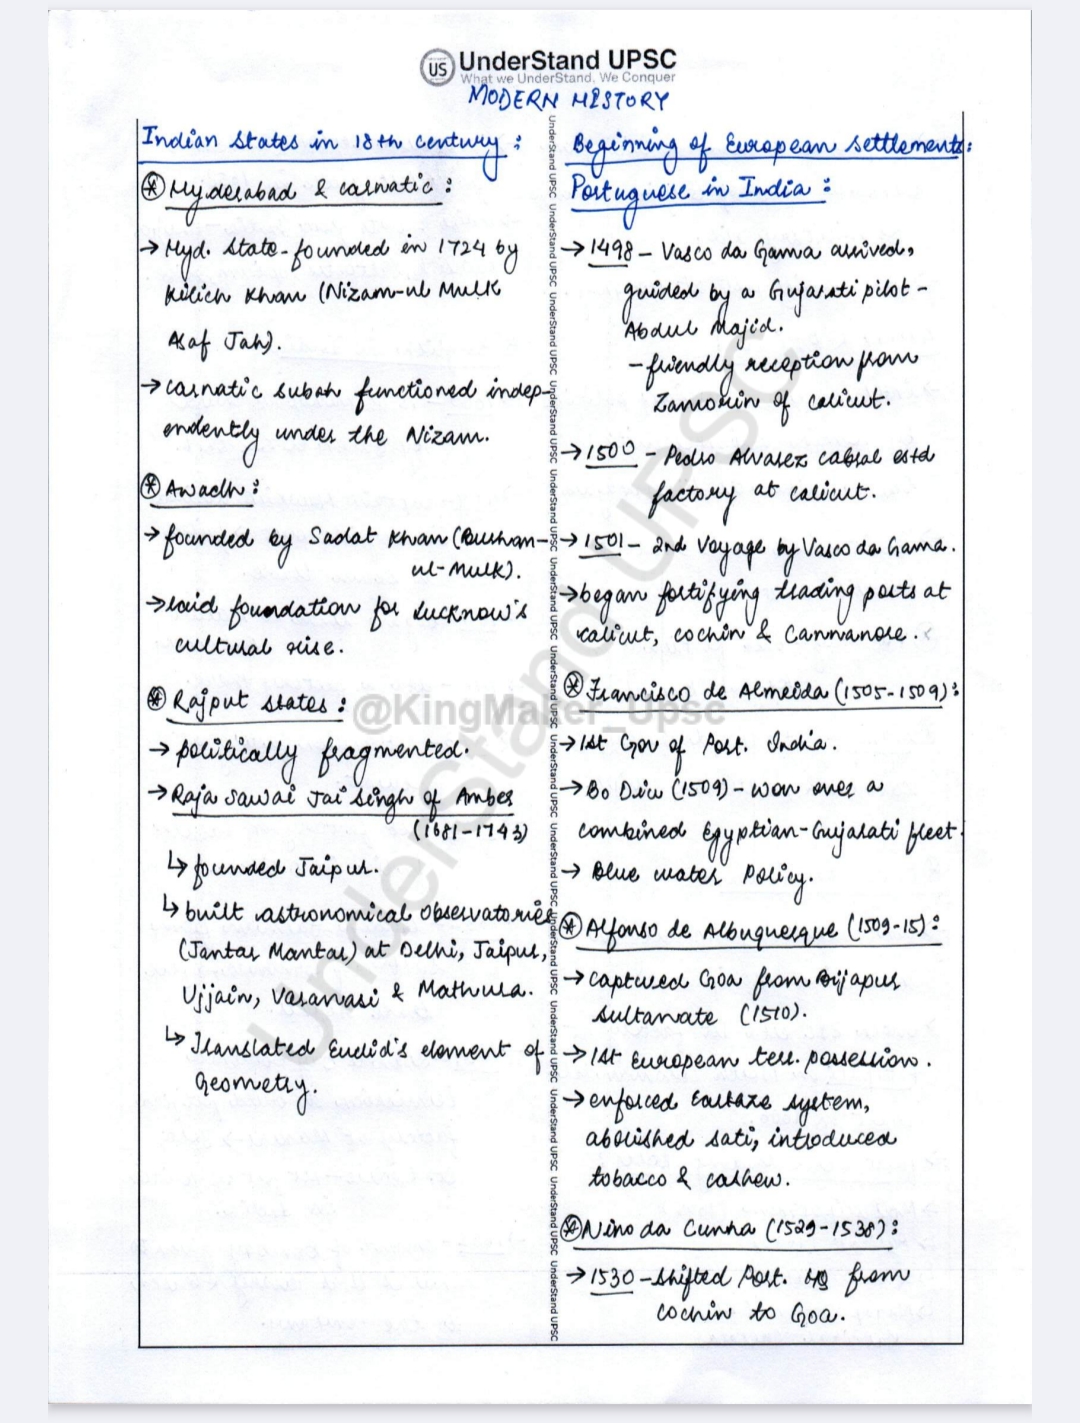 US UnderStand UPSC
What we UnderStand, We Conquer
MODERN HISTORY
Indian states in 18th century :
* Hyderabad & carnatic :
→ Hyd. state - founded in 1724 by
Kilich Khan (Nizam-ul Mulk
Asaf Jah).
→ carnatic subah functioned indep-
endently under the Nizam.
* Awadh :
→ founded by Sadat Khan (Burhan-
ul-Mulk).
→ laid foundation for Lucknow's
cultural rise.
* Rajput states :
→ politically fragmented.
→ Raja Sawai Jai Singh of Amber
(1681-1743)
↳ founded Jaipur.
↳ built astronomical observatories
(Jantar Mantar) at Delhi, Jaipur,
Ujjain, Varanasi & Mathura.
↳ Translated Euclid's element of
Geometry.
UnderStand UPSC UnderStand UPSC UnderStand UPSC UnderStand UPSC UnderStand UPSC UnderStand UPSC UnderStand UPSC UnderStand UPSC UnderStand UPSC UnderStand UPSC UnderStand UPSC UnderStand UPSC UnderStand UPSC UnderStand UPSC
Beginning of European settlements :
Portuguese in India :
→ 1498 - Vasco da Gama arrived,
guided by a Gujarati pilot -
Abdul Majid.
- friendly reception from
Zamorin of calicut.
→ 1500 - Pedro Alvarez cabral estd
factory at calicut.
→ 1501 - 2nd Voyage by Vasco da Gama.
→ began fortifying trading posts at
calicut, cochin & Cannanore.
* Francisco de Almeida (1505-1509) :
→ 1st Gov of Port. India.
→ Bo Diu (1509) - won over a
combined Egyptian-Gujarati fleet.
→ Blue water Policy.
* Alfonso de Albuquerque (1509-15) :
→ captured Goa from Bijapur
sultanate (1510).
→ 1st European terr. possession.
→ enforced cartaze system,
abolished sati, introduced
tobacco & cashew.
* Nino da Cunha (1529-1538) :
→ 1530 - shifted Port. HQ from
cochin to Goa.
@KingMaker_Upsc
UnderStand UPSC